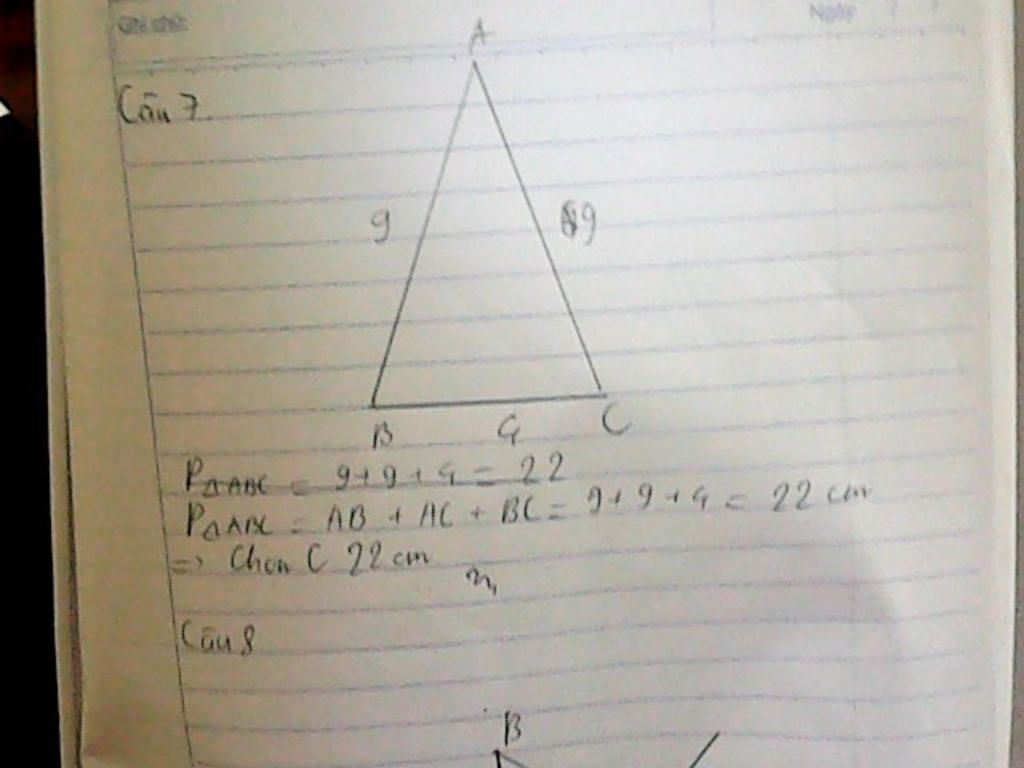 Ghi chú:
Ngày / /
A
Câu 7.
9
9
B 4 C
P△ABC = 9+9+4 = 22
P△ABC = AB + AC + BC = 9+9+4 = 22 cm
=> Chọn C 22 cm
Câu 8
B